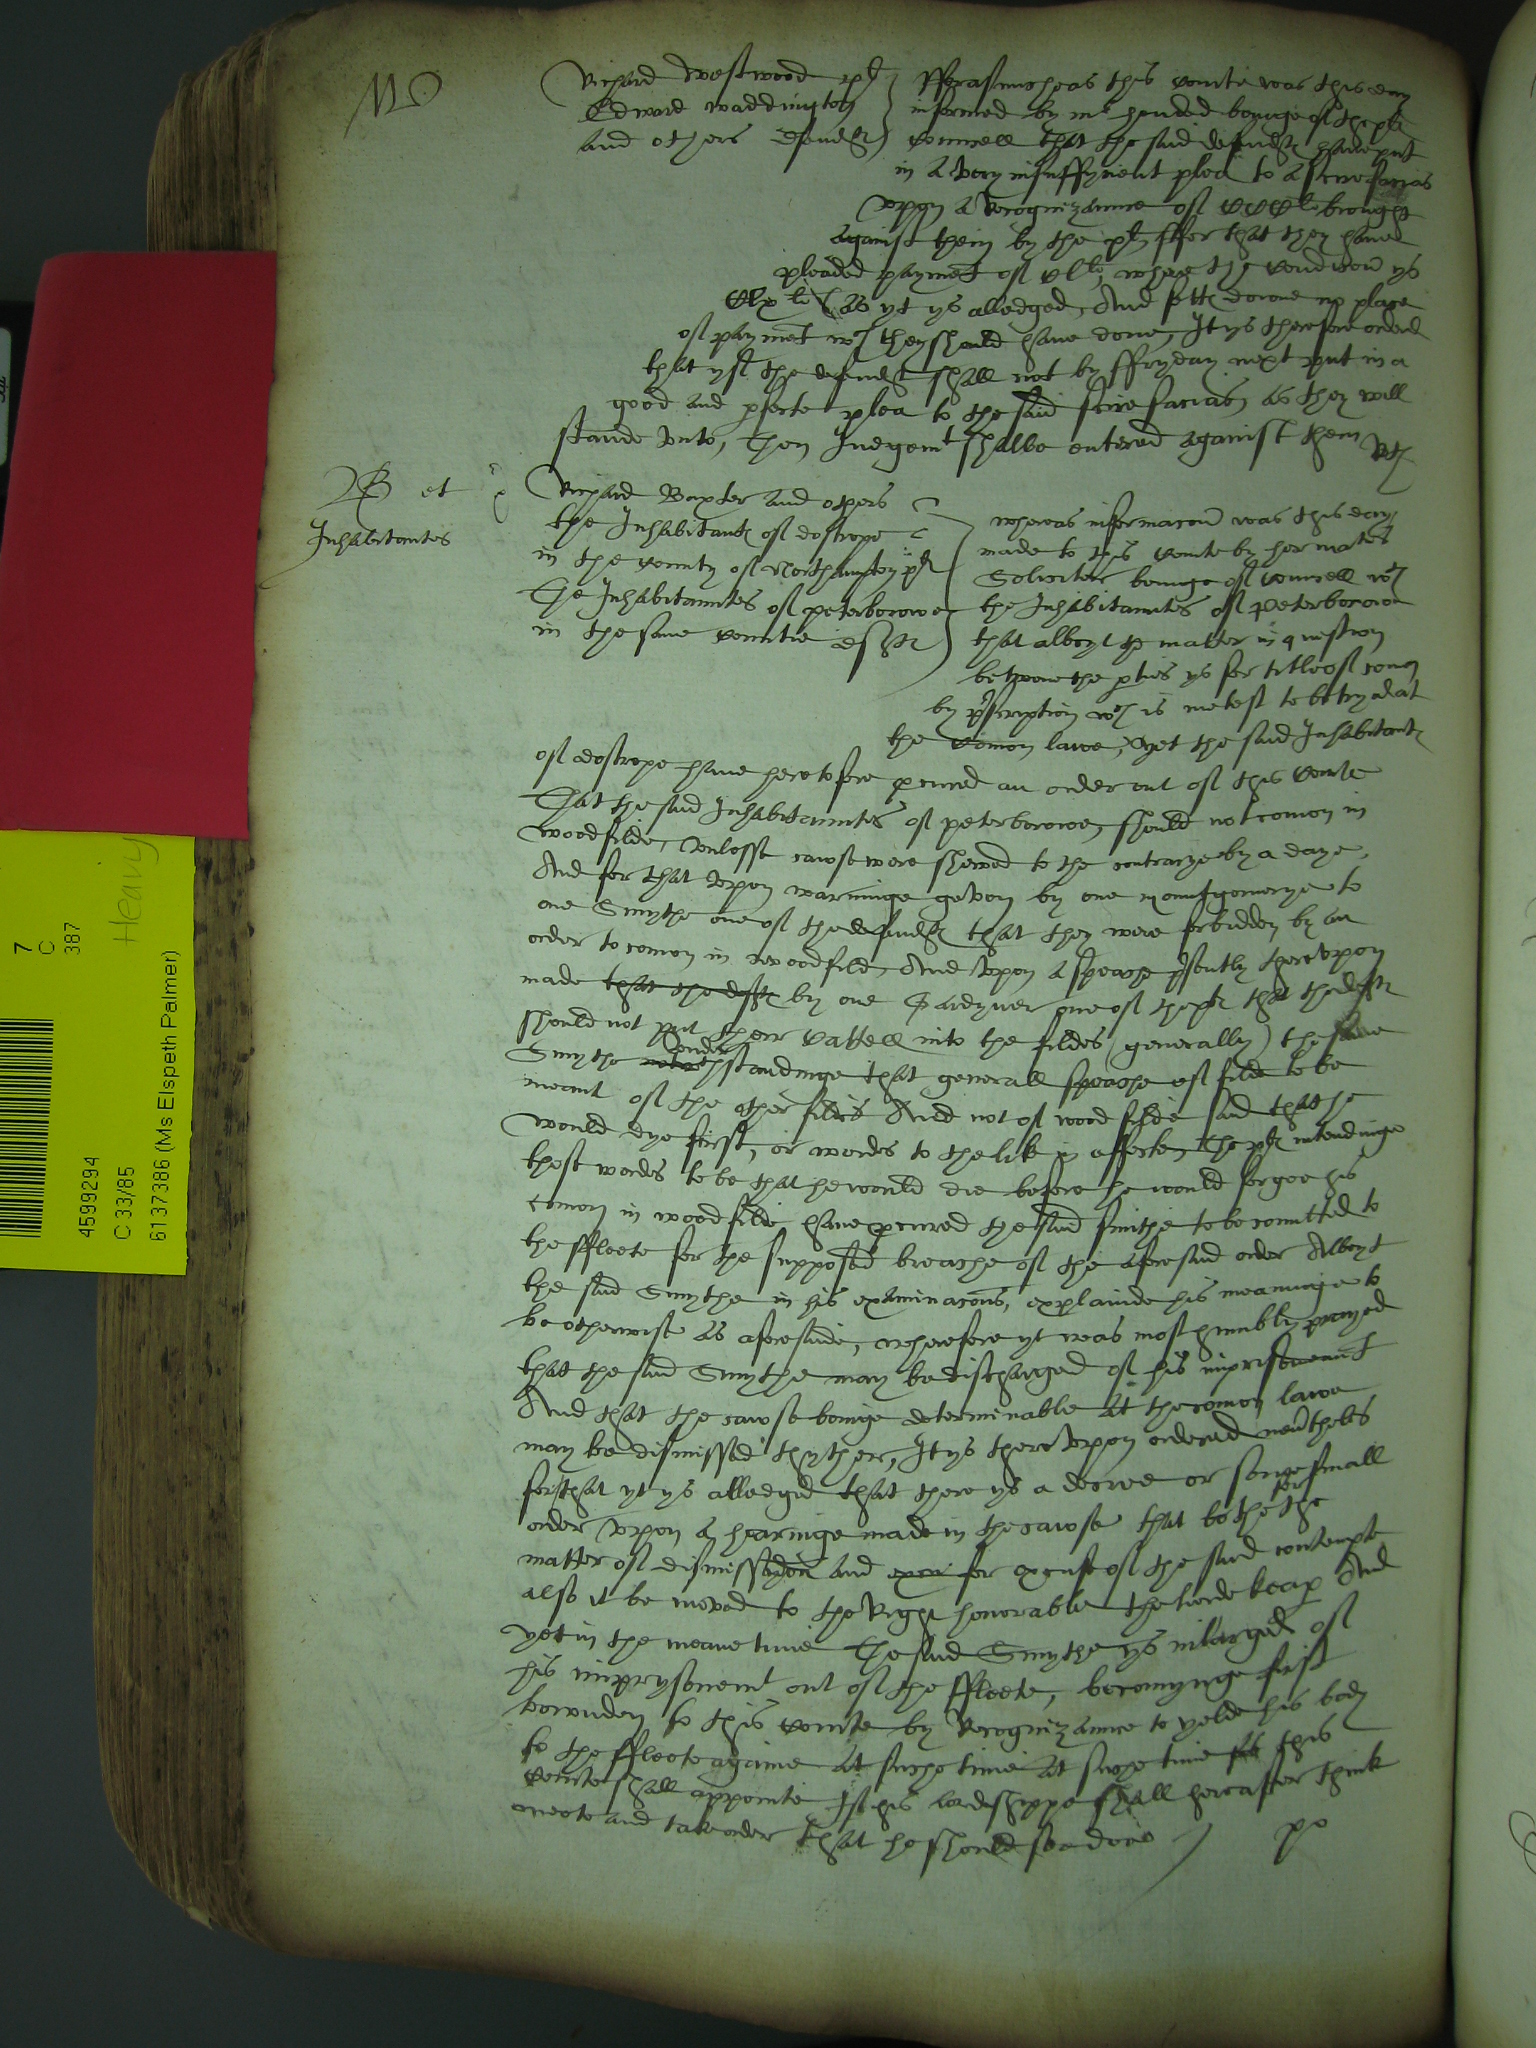 Richard Westwood pl
Edward Waddington
and others defendtes
Fforasmucheas this courte was this day
informed by mr beinge of the pltes
councell that the said defendtes have put
in a very insuffycient plea to a scire facias
uppon a Recognizaunce of CCC li brought
against them by the pl ffor that they have
pleaded payment of where the condicon ys
as yt ys alledged, And sett downe no place
of payment wch they should have done, It ys therefore ordered
that yf the defendtes shall not by ffryday next put in a
good and pfecte plea to the said scire facias, as they will
stande unto, Then Judgemt shalbe entered against them
B et
Inhabitantes
Richard Baxter and others
the Inhabitantes of dostrope
in the county of Northampton pltes
The Inhabitauntes of peterborowe
in the same countie deftes
whereas informacon was this day
made to this courte by her maties
Soliciter beinge of councell wth
the Inhabitauntes of Peterborowe
that albeyt the matter in question
betwene the pties ys for title of comon
by pscription wch is metest to be tryed at
the comon lawe, yet the said Inhabitantes
of dostrope have heretofore pcured an order out of this courte
That the said Inhabitauntes of peterborowe, should not comon in
woodfilde, unlesse cawse were shewed to the contrarye by a daye,
And for that upon warninge geven by one mountgomerye to
one Smythe one of the defendtes that they were forbidden by an
order to comon in woodfild, And upon a speache psently thereupon
made that the deftes by one Gardyner one of the pltes that the deftes
should not put their cattell into the fildes (generally) the same
Smythe under standinge that generall speache of fild to be
meant of the other fildes And not of wood filde said that he
would dye first, or wordes to the like in effecte, The pltes intendinge
those wordes to be that he would die before he would forgoe his
comon in woodfilde have pcured the said smithe to be comitted to
the ffleete for the supposed breache of the aforesaid order Albeyt
the said Smythe in his examinacons, explainde his meaninge to
be otherwise as aforesaide, wherefore yt was most humbly prayed
that the said Smythe may be discharged of his imprisonemt
And that the cawse beinge determinable at the comon lawe
may be dismissed thyther, It ys thereupon ordered nevertheles
for that yt ys alledged that there ys a decree or some finall
order upon a hearinge made in the cawse that bothe for the
matter of dismissyon and for excuse of the said contempte
also it be moved to the Right honorable the lorde keap And
yet in the meane time The said Smythe ys inlarged of
his imprysonemt out of the ffleete, becomynge first
bownden to this courte by Recognizaunce to yelde his body
to the ffleete againe at suche time at suche time this
courte shall appointe If his lordeshippe shall hereafter think
meete and take order that he should so doe
4599294
C 33/85
6137386 (Ms Elspeth Palmer)
7
C
387
Heavy